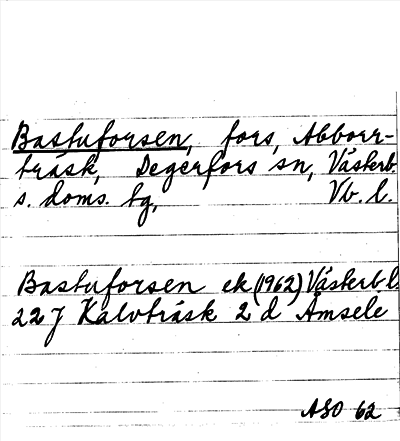 Bastuforsen, fors, Abborr-
träsk, Degerfors sn, Västerb.
s. doms. tg, Vb. l.
Bastuforsen ek (1962) Västerb.l.
22 J Kalvträsk 2 d Åmsele
ASO 62